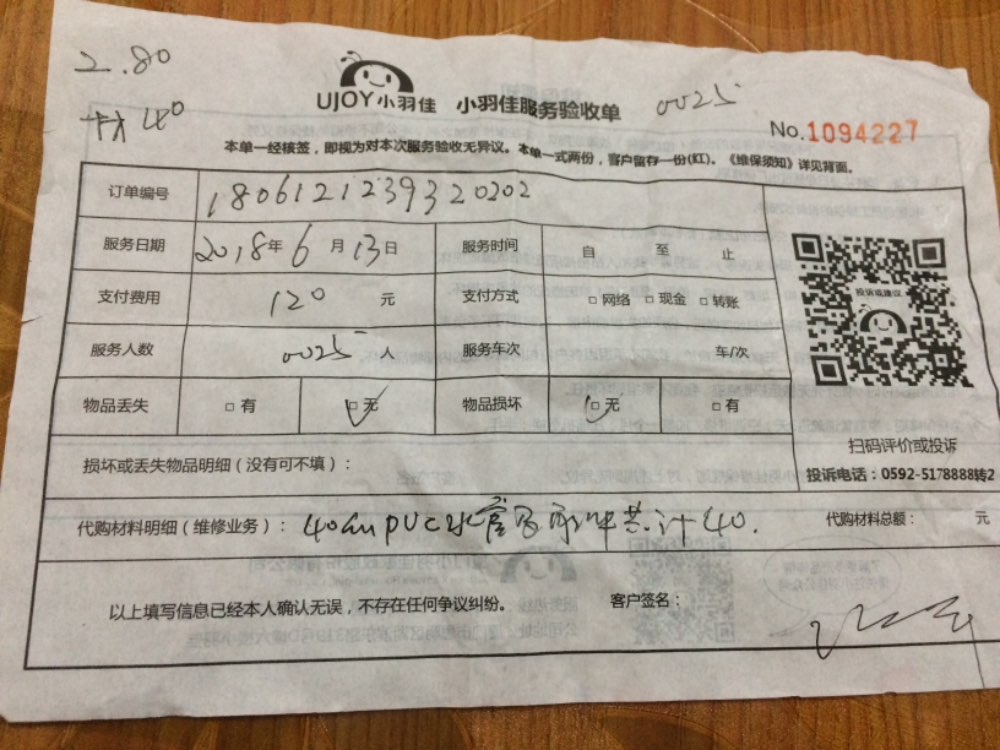 2.80
材 40
UJOY小羽佳 小羽佳服务验收单 0025
No.1094227
本单一经核签，即视为对本次服务验收无异议。本单一式两份，客户留存一份(红)。《维保须知》详见背面。
订单编号 180612123932 0202
服务日期 2018年 6 月 13 日 服务时间 自 至 止
投诉或建议
支付费用 120 元 支付方式 □ 网络 □ 现金 □ 转账
服务人数 0025 人 服务车次 车/次
物品丢失 □ 有 □ 无 物品损坏 □ 无 □ 有
扫码评价或投诉
损坏或丢失物品明细（没有可不填）：
投诉电话：0592-5178888转2
代购材料明细（维修业务）： 40 PVC水管 共计40.
代购材料总额： 元
以上填写信息已经本人确认无误，不存在任何争议纠纷。 客户签名：